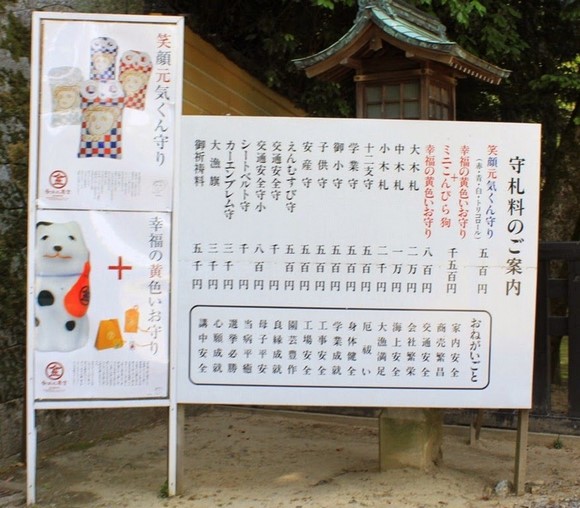 守札料のご案内
笑顔元気くん守り
(赤・青・白・トリコロール)
五百円
幸福の黄色いお守り
+
ミニこんぴら狗
千五百円
幸福の黄色いお守り 八百円
大木札 二万円
中木札 一万円
小木札 二千円
十二支守 五百円
学業守 五百円
御小守 五百円
子供守 五百円
安産守 五百円
えんむすび守 五百円
交通安全守 千円
交通安全守小 八百円
シートベルト守 千円
カーエンブレム守 三千円
大漁旗 三千円
御祈祷料 五千円
おねがいごと
家内安全
商売繁昌
交通安全
会社繁栄
海上安全
大漁満足
厄祓い
身体健全
学業成就
工事安全
工場安全
園芸豊作
良縁成就
母子平安
当病平癒
選挙必勝
心願成就
講中安全
笑顔元気くん守り
幸福の黄色いお守り
+